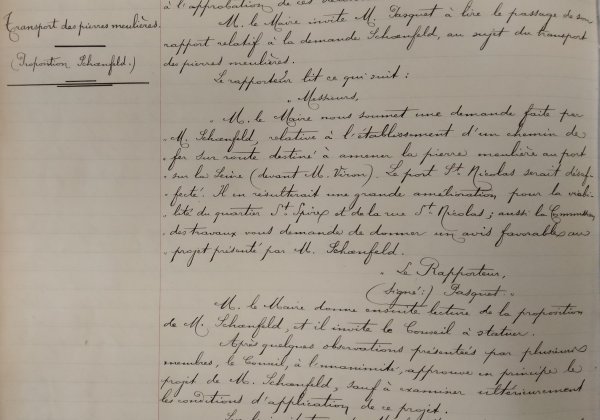 à l'approbation de ces
Transport des pierres meulières.
(Proposition Schœnfeld.)
M. le Maire invite M. Pasquet à lire le passage de son
rapport relatif à la demande Schœnfeld, au sujet du transport
des pierres meulières.
Le rapporteur lit ce qui suit :
„ Messieurs,
„ M. le Maire nous soumet une demande faite par
„ M. Schœnfeld, relative à l'établissement d'un chemin de
„ fer sur route destiné à amener la pierre meulière au port
„ sur la Seine (devant M. Viron). Le port St Nicolas serait désaf-
„ fecté. Il en résulterait une grande amélioration pour la viabi-
„ lité du quartier St Spire et de la rue St Nicolas ; aussi la Commission
„ des travaux vous demande de donner un avis favorable au
„ projet présenté par M. Schœnfeld.
„ Le Rapporteur,
(Signé :) Pasquet. „
M. le Maire donne ensuite lecture de la proposition
de M. Schœnfeld, et il invite le Conseil à statuer.
Après quelques observations présentées par plusieurs
membres, le Conseil, à l'unanimité, approuve en principe le
projet de M. Schœnfeld, sauf à examiner ultérieurement
les conditions d'application de ce projet.